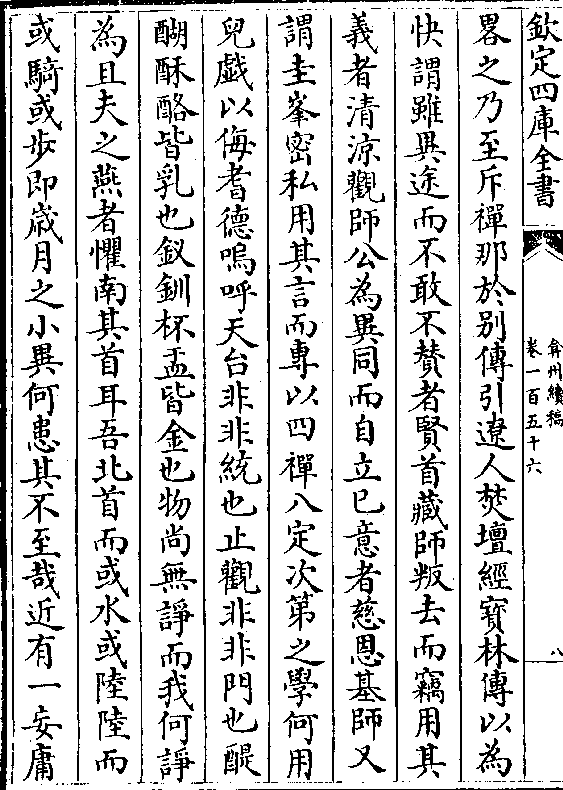 欽定四庫全書
弇州續稿
卷一百五十六
八
畧之乃至斥禪那於别傳引遼人焚壇經寳林傳以為
快謂雖異途而不敢不賛者賢首藏師叛去而竊用其
義者清涼觀師公為異同而自立已意者慈恩基師又
謂圭峯密私用其言而專以四禪八定次第之學何用
兒戯以侮耆德嗚呼天台非非統也止觀非非門也醍
醐酥酪皆乳也釵釧杯盂皆金也物尚無諍而我何諍
為且夫之燕者懼南其首耳吾北首而或水或陸陸而
或騎或步即歳月之小異何患其不至哉近有一妄庸